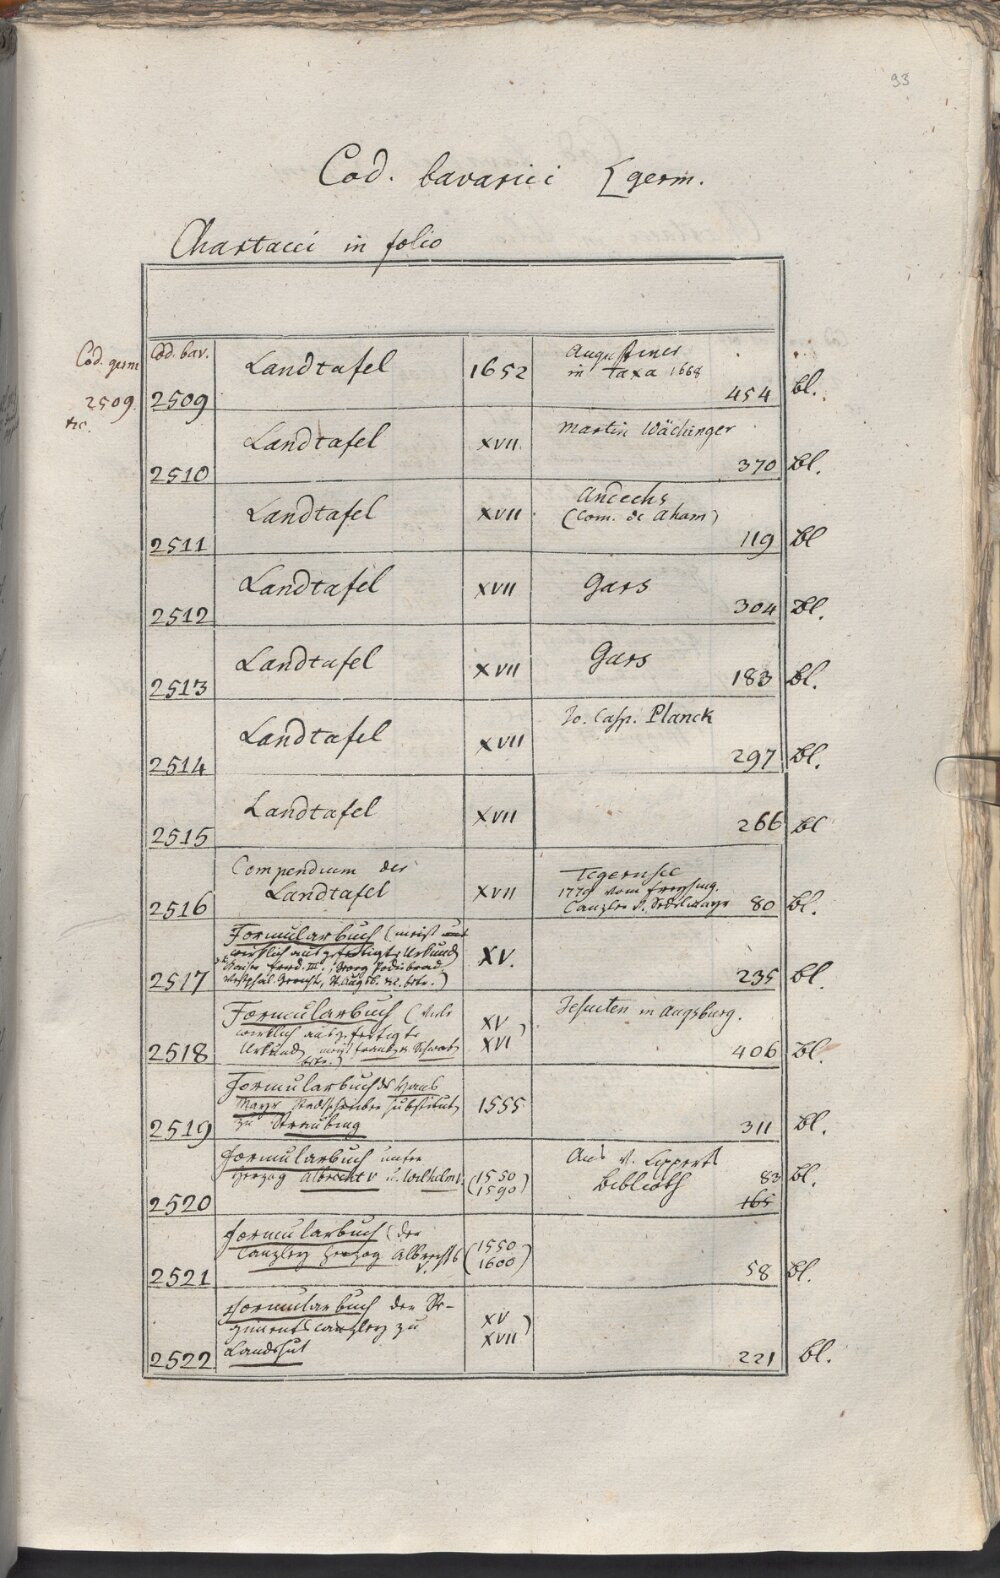 93
Cod. bavarici [germ.
Chartacei in folio
Cod. germ
2509.
etc.
Cod. bav.
2509 Landtafel 1652 Augustiner in Taxa 1668 454 bl.
2510 Landtafel XVII Martin Wächinger 370 bl.
2511 Landtafel XVII Andechs (Com. de Aham) 119 bl
2512 Landtafel XVII Gars 304 bl.
2513 Landtafel XVII Gars 183 bl.
2514 Landtafel XVII Jo. Casp. Planck 297 bl.
2515 Landtafel XVII 266 bl
2516 Compendium der Landtafel XVII Tegernsee 1779 vom Freysing. Canzler v. Sedelmayr 80 bl.
2517 Formularbuch (meist
wirklich ausgefertigte Urkund
Kaiser Frid. III. Georg Podiebrad
Westphäl. Gericht, St. Augsb. etc.) XV. 235 bl.
2518 Formularbuch (viele
wirklich ausgefertigte
Urkund meist Schwab XV XVI) Jesuiten in Augsburg. 406 bl.
2519 Formularbuch des Hans
Mayr Stadtschreiber Substitut
zu Straubing 1555 311 bl.
2520 Formularbuch unter
Herzog Albrecht V u. Wilhelm V. (1550 1590) Aus v. Lipperts Biblioth 83 bl.
165
2521 Formularbuch (der
Canzley Herzog Albrechts V. (1550 1600) 58 bl.
2522 Formularbuch der Re-
giments Canzley zu
Landshut XV XVII) 221 bl.